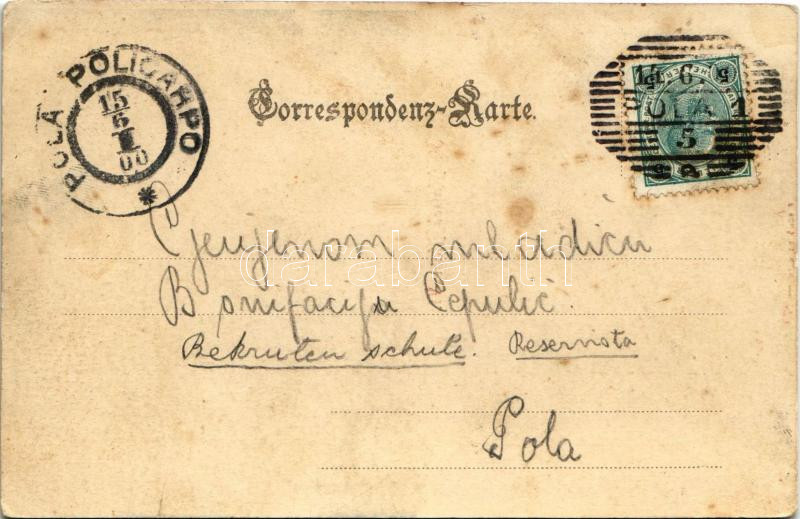 POLA POLICARPO
15
6
00
*
Correspondenz-Karte.
14 6
POLA
5
Cjenjenom mladiću
Bonifaciju Cepulić.
Rekruten schule. Reservista
Pola
darabanth